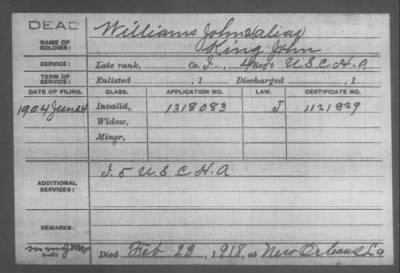 DEAD
NAME OF SOLDIER: Williams John (alias)
King John
SERVICE: Late rank, Co. I, 4 Reg't U.S.C.H.A
TERM OF SERVICE: Enlisted , 1 Discharged , 1
DATE OF FILING. CLASS. APPLICATION NO. LAW. CERTIFICATE NO.
1904 June 4 Invalid, 1318083 J 1121829
Widow,
Minor,
ADDITIONAL SERVICES: I. 5 U.S.C.H.A
REMARKS:
Died Feb 28, 1918, at New Orleans La